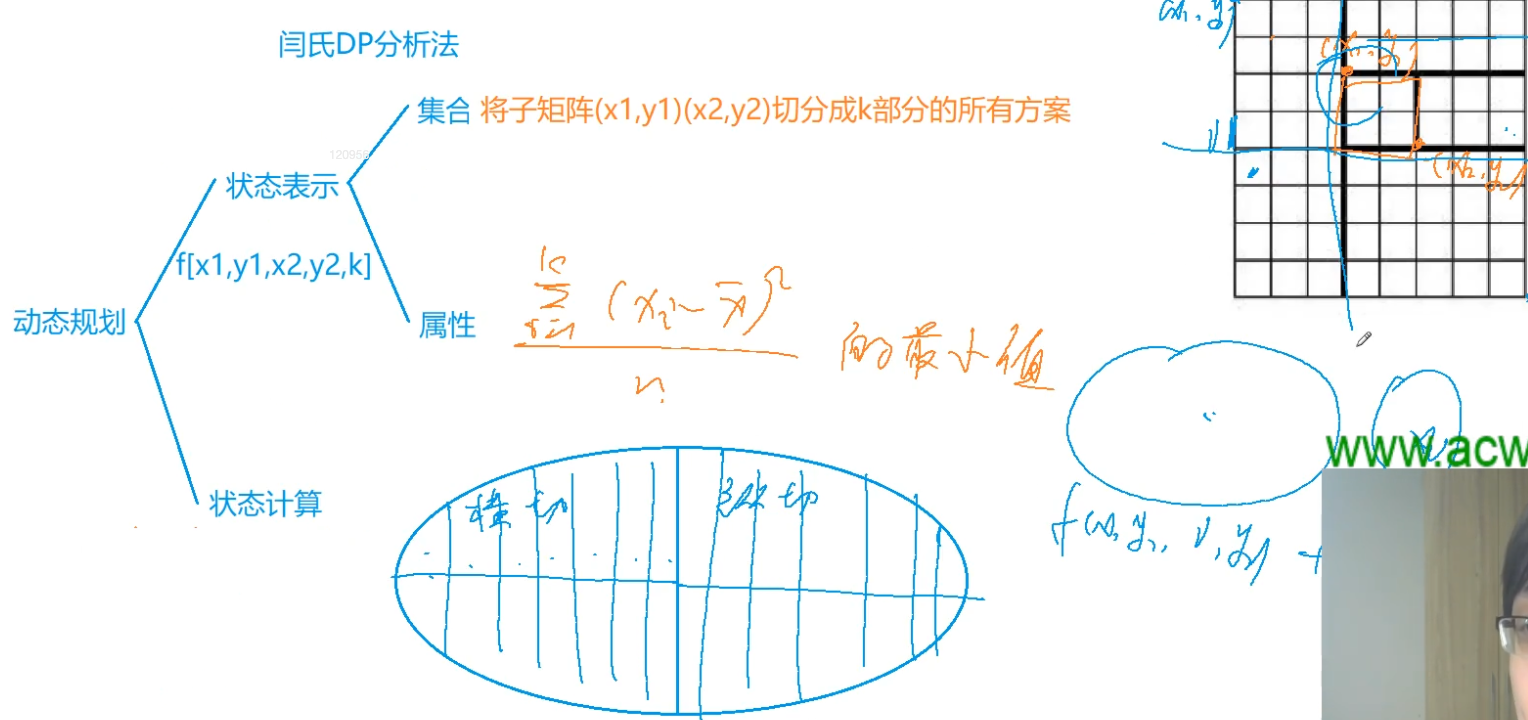 闫氏DP分析法
集合 将子矩阵(x1,y1)(x2,y2)切分成k部分的所有方案
120956
状态表示
f[x1,y1,x2,y2,k]
动态规划
属性
的最小值
状态计算
横切
纵切
(x1, y1)
(x2, y2)
www.acw